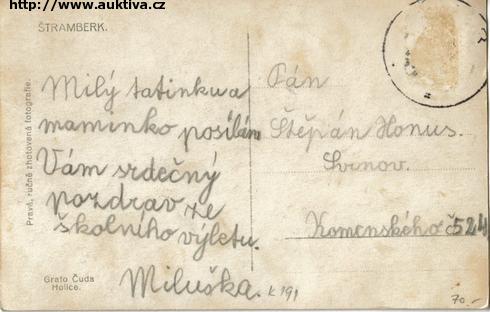 http://www.auktiva.cz
ŠTRAMBERK.
Milý tatínku a
maminko posílám
Vám srdečný
pozdrav ze
školního výletu.
Miluška.
Pán
Štěpán Honus.
Svinov.
Komenského č 524
Pravá, ručně zhotovená fotografie.
Grafo Čuda
Holice.
K 191
70.-